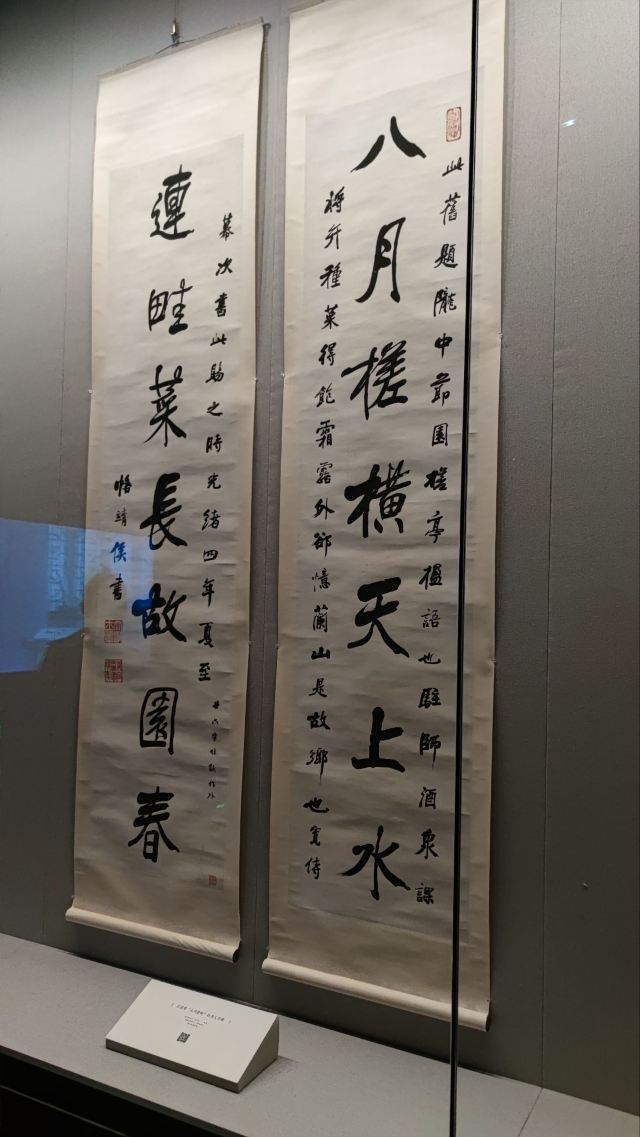 此舊題隴中節園槎亭楹語也駐師酒泉課
八月槎橫天上水
將弁種菜得飽霜露外郤憶蘭山是故鄉也寬侍
幕次書此貽之時光緒四年夏至
連畦菜長故園春
恪靖侯書